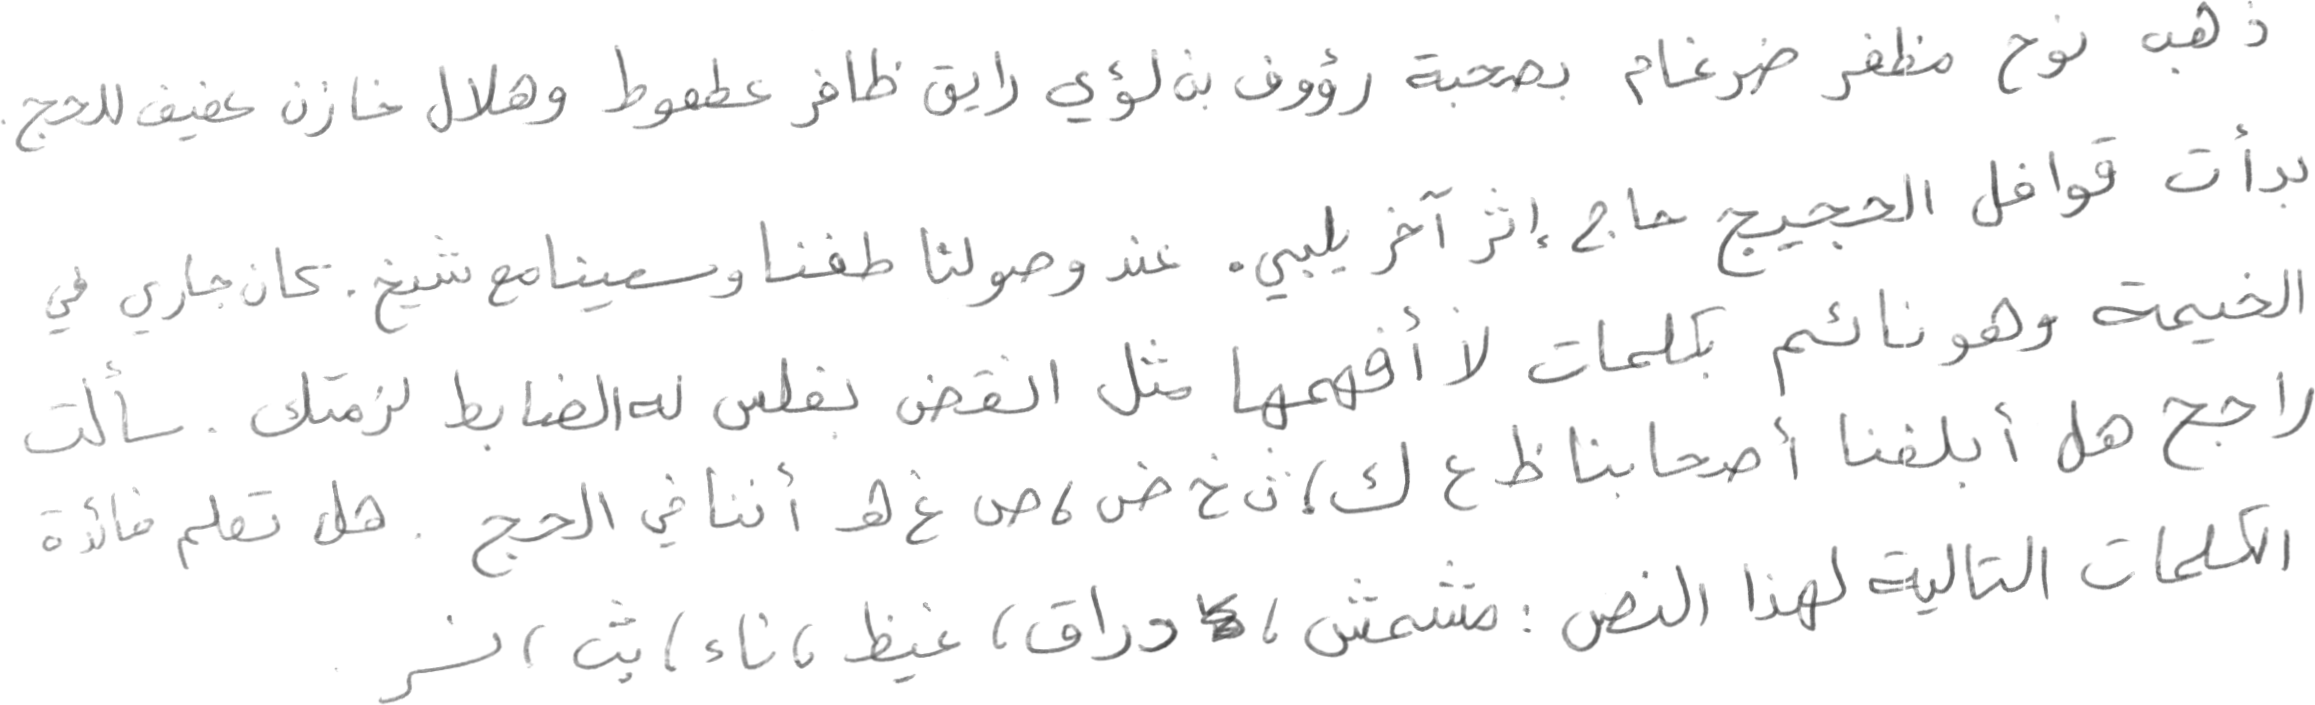 ذهب نوح مظفر ضرغام بصحبة رؤوف بن لؤي رايق ظافر عطعوط وهلال خازن عفيف للحج.
بدأت قوافل الحجيج حاج إثر آخر يلبي. عند وصولنا طفنا وسعينا مع شيخ. كان جاري في
الخيمة وهو نائم بكلمات لا أفهمها مثل انقض بغلس نه الضابط لزمتك. سألت
راجح هل أبلغنا أصحابنا ظ ع ك، ث خ ض، ص غ هـ أننا في الحج. هل تعلم فائدة
الكلمات التالية لهذا النص: مشمش، دراق، غيظ، ناء، بث، نسر